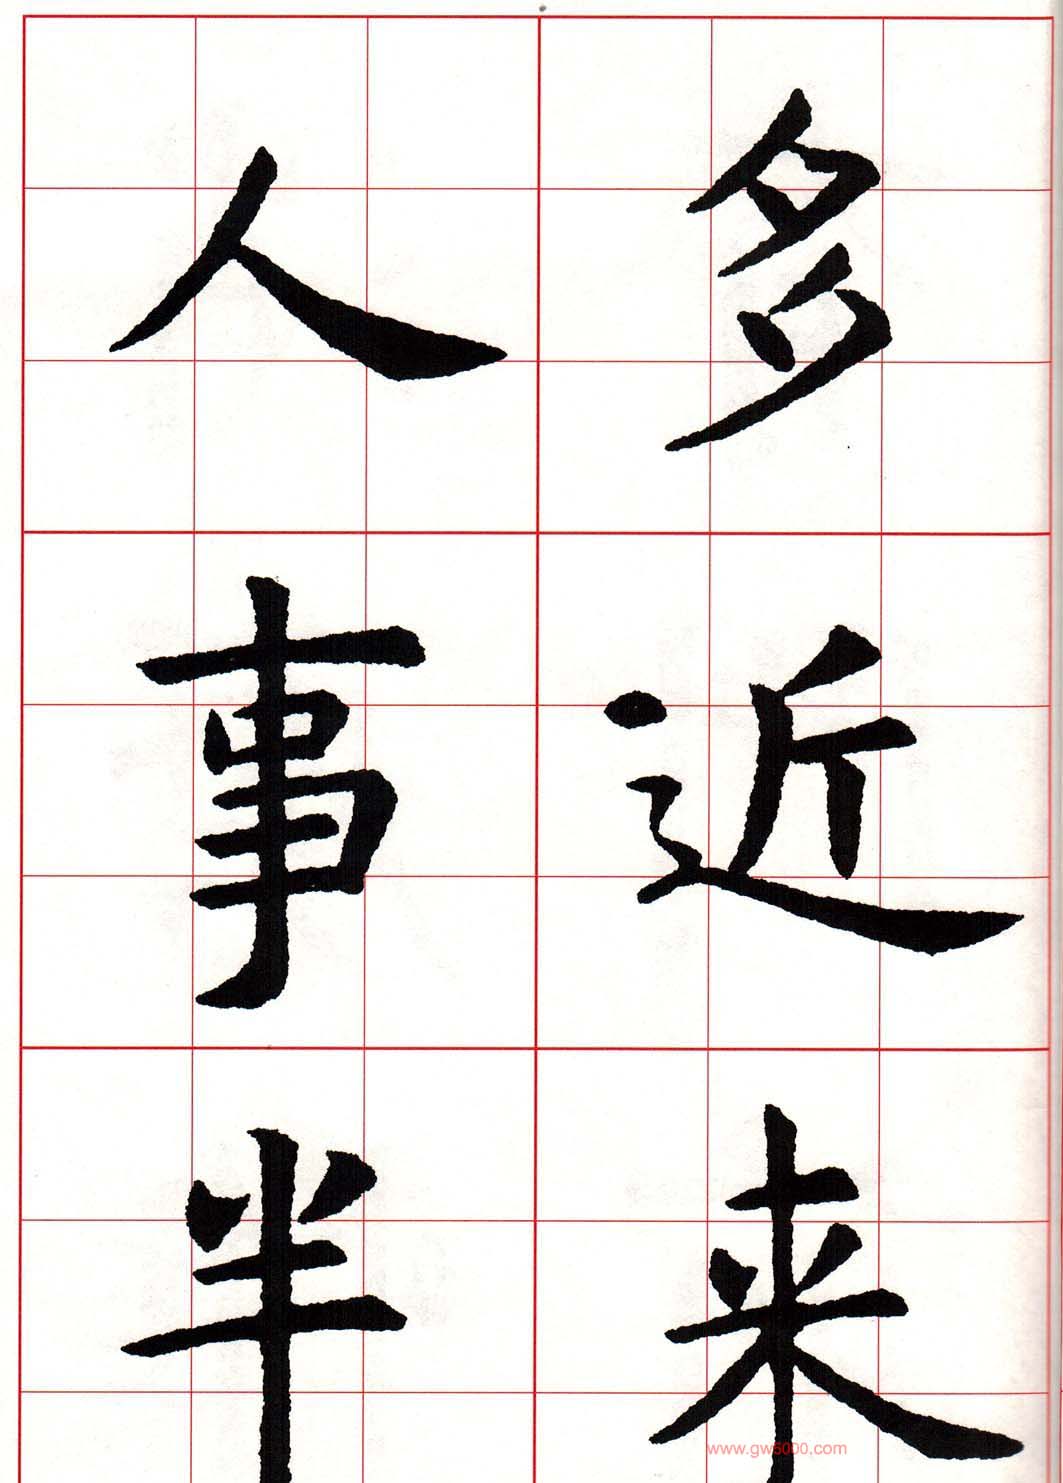 多近来
人事半
www.gw5000.com